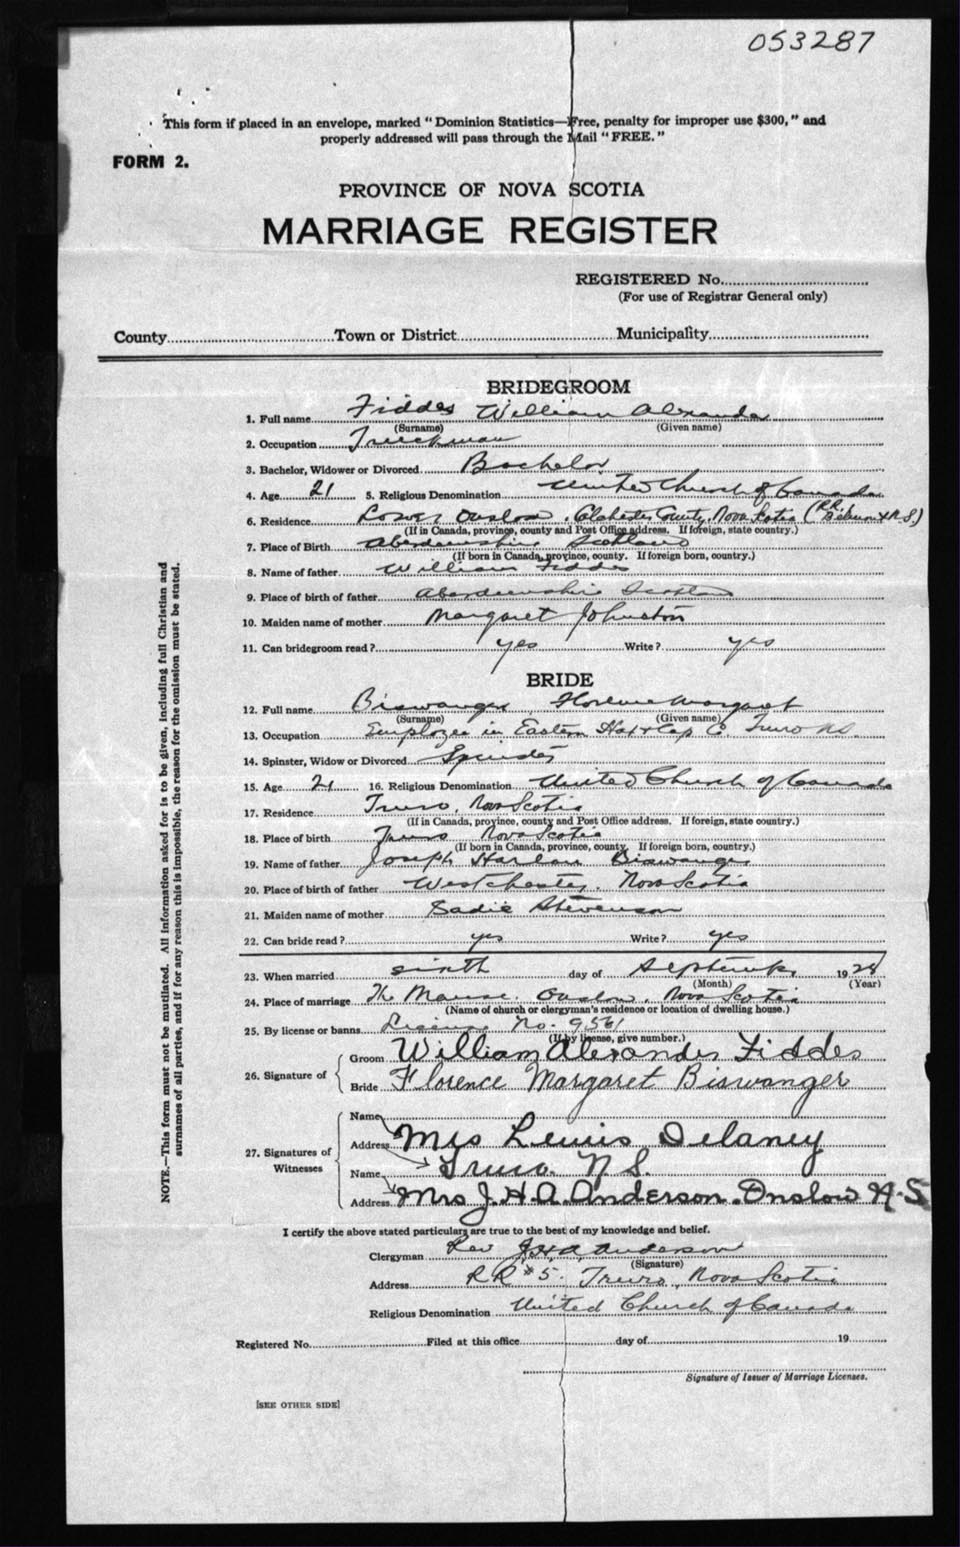 053287
This form if placed in an envelope, marked "Dominion Statistics—Free, penalty for improper use $300," and
properly addressed will pass through the Mail "FREE."
FORM 2.
PROVINCE OF NOVA SCOTIA
MARRIAGE REGISTER
REGISTERED No.
(For use of Registrar General only)
County Town or District Municipality
BRIDEGROOM
1. Full name Fiddes William Alexander
(Surname) (Given name)
2. Occupation Truckman
3. Bachelor, Widower or Divorced Bachelor
4. Age 21 5. Religious Denomination United Church of Canada
6. Residence Lower Onslow, Colchester County, Nova Scotia (R.R. N.S.)
(If in Canada, province, county and Post Office address. If foreign, state country.)
7. Place of Birth Aberdeenshire Scotland
(If born in Canada, province, county. If foreign born, country.)
8. Name of father William Fiddes
9. Place of birth of father Aberdeenshire Scotland
10. Maiden name of mother Margaret Johnston
11. Can bridegroom read? yes Write? yes
BRIDE
12. Full name Biswanger Florence Margaret
(Surname) (Given name)
13. Occupation Employee in Eastern Hat & Cap Co. Truro N.S.
14. Spinster, Widow or Divorced Spinster
15. Age 21 16. Religious Denomination United Church of Canada
17. Residence Truro, Nova Scotia
(If in Canada, province, county and Post Office address. If foreign, state country.)
18. Place of birth Truro Nova Scotia
(If born in Canada, province, county. If foreign born, country.)
19. Name of father Joseph Harlan Biswanger
20. Place of birth of father Westchester, Nova Scotia
21. Maiden name of mother Sadie Stevenson
22. Can bride read? yes Write? yes
23. When married sixth day of September 1928
(Month) (Year)
24. Place of marriage The Manse, Onslow, Nova Scotia
(Name of church or clergyman's residence or location of dwelling house.)
25. By license or banns License No. 9561
(If by license, give number.)
26. Signature of
Groom William Alexander Fiddes
Bride Florence Margaret Biswanger
27. Signatures of Witnesses
Name
Address Mrs Lewis Delaney
Name Truro. N S.
Address Mrs J. H. A. Anderson. Onslow N.S
I certify the above stated particulars are true to the best of my knowledge and belief.
Clergyman Rev J.H.A. Anderson
(Signature)
Address RR #5. Truro, Nova Scotia
Religious Denomination United Church of Canada
Registered No. Filed at this office day of 19
Signature of Issuer of Marriage Licenses.
[SEE OTHER SIDE]
NOTE.—This form must not be mutilated. All information asked for is to be given, including full Christian and
surnames of all parties, and if for any reason this is impossible, the reason for the omission must be stated.